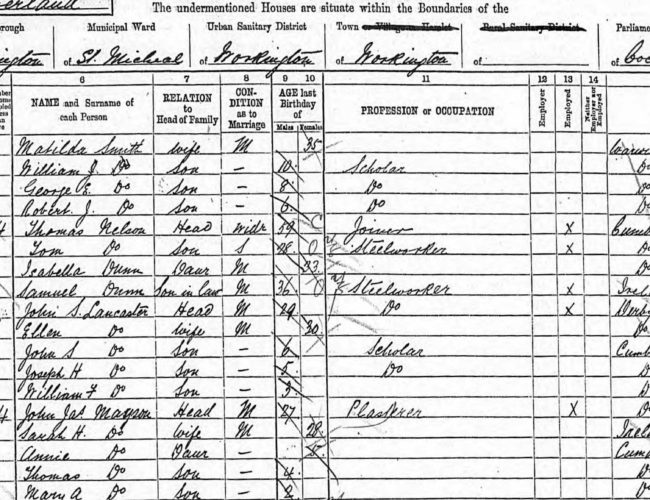 erland
The undermentioned Houses are situate within the Boundaries of the
orough Municipal Ward Urban Sanitary District Town or Village or Hamlet Rural Sanitary District Parliame
ington of St. Micheal of Workington of Workington of Coc
6 7 8 9 10 11 12 13 14
NAME and Surname of each Person RELATION to Head of Family CONDITION as to Marriage AGE last Birthday of Males Females PROFESSION or OCCUPATION Employer Employed Neither Employer nor Employed
Matilda Smith wife M 35
William J. Do son — 10 Scholar Do
George E. Do son — 8 Do
Robert J. Do son — 6 Do
4 Thomas Nelson Head widr 59 Joiner X Cumb
Tom Do son S 28 Steelworker X Do
Isabella Dunn Daur M 33 Do
Samuel Dunn Son in law M 36 Steelworker X Irel
John S. Lancaster Head M 29 Do X Derb
Ellen Do wife M 30 Do
John S Do son — 6 Scholar Cumb
Joseph H Do son — 5 Do
William F Do son — 3 D
4 John Jas Mayson Head M 27 Plasterer X D
Sarah H. Do wife M 28 Irel
Annie Do Daur — 5 Cumb
Thomas Do son — 4 D
Mary A Do son — 2 D